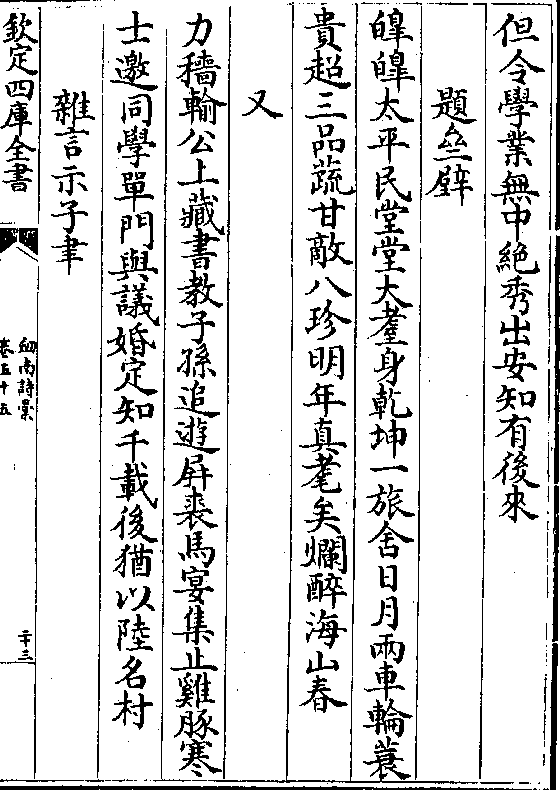 但令學業無中絶秀出安知有後來
題齋壁
皥皥太平民堂堂大耋身乾坤一旅舍日月兩車輪蓑
貴超三品蔬甘敵八珍明年真耄矣爛醉海山春
又
力穡輸公上藏書教子孫追遊屏裘馬宴集止雞豚寒
士邀同學單門與議婚定知千載後猶以陸名村
雜言示子聿
欽定四庫全書
劒南詩槀
卷五十五
二十三